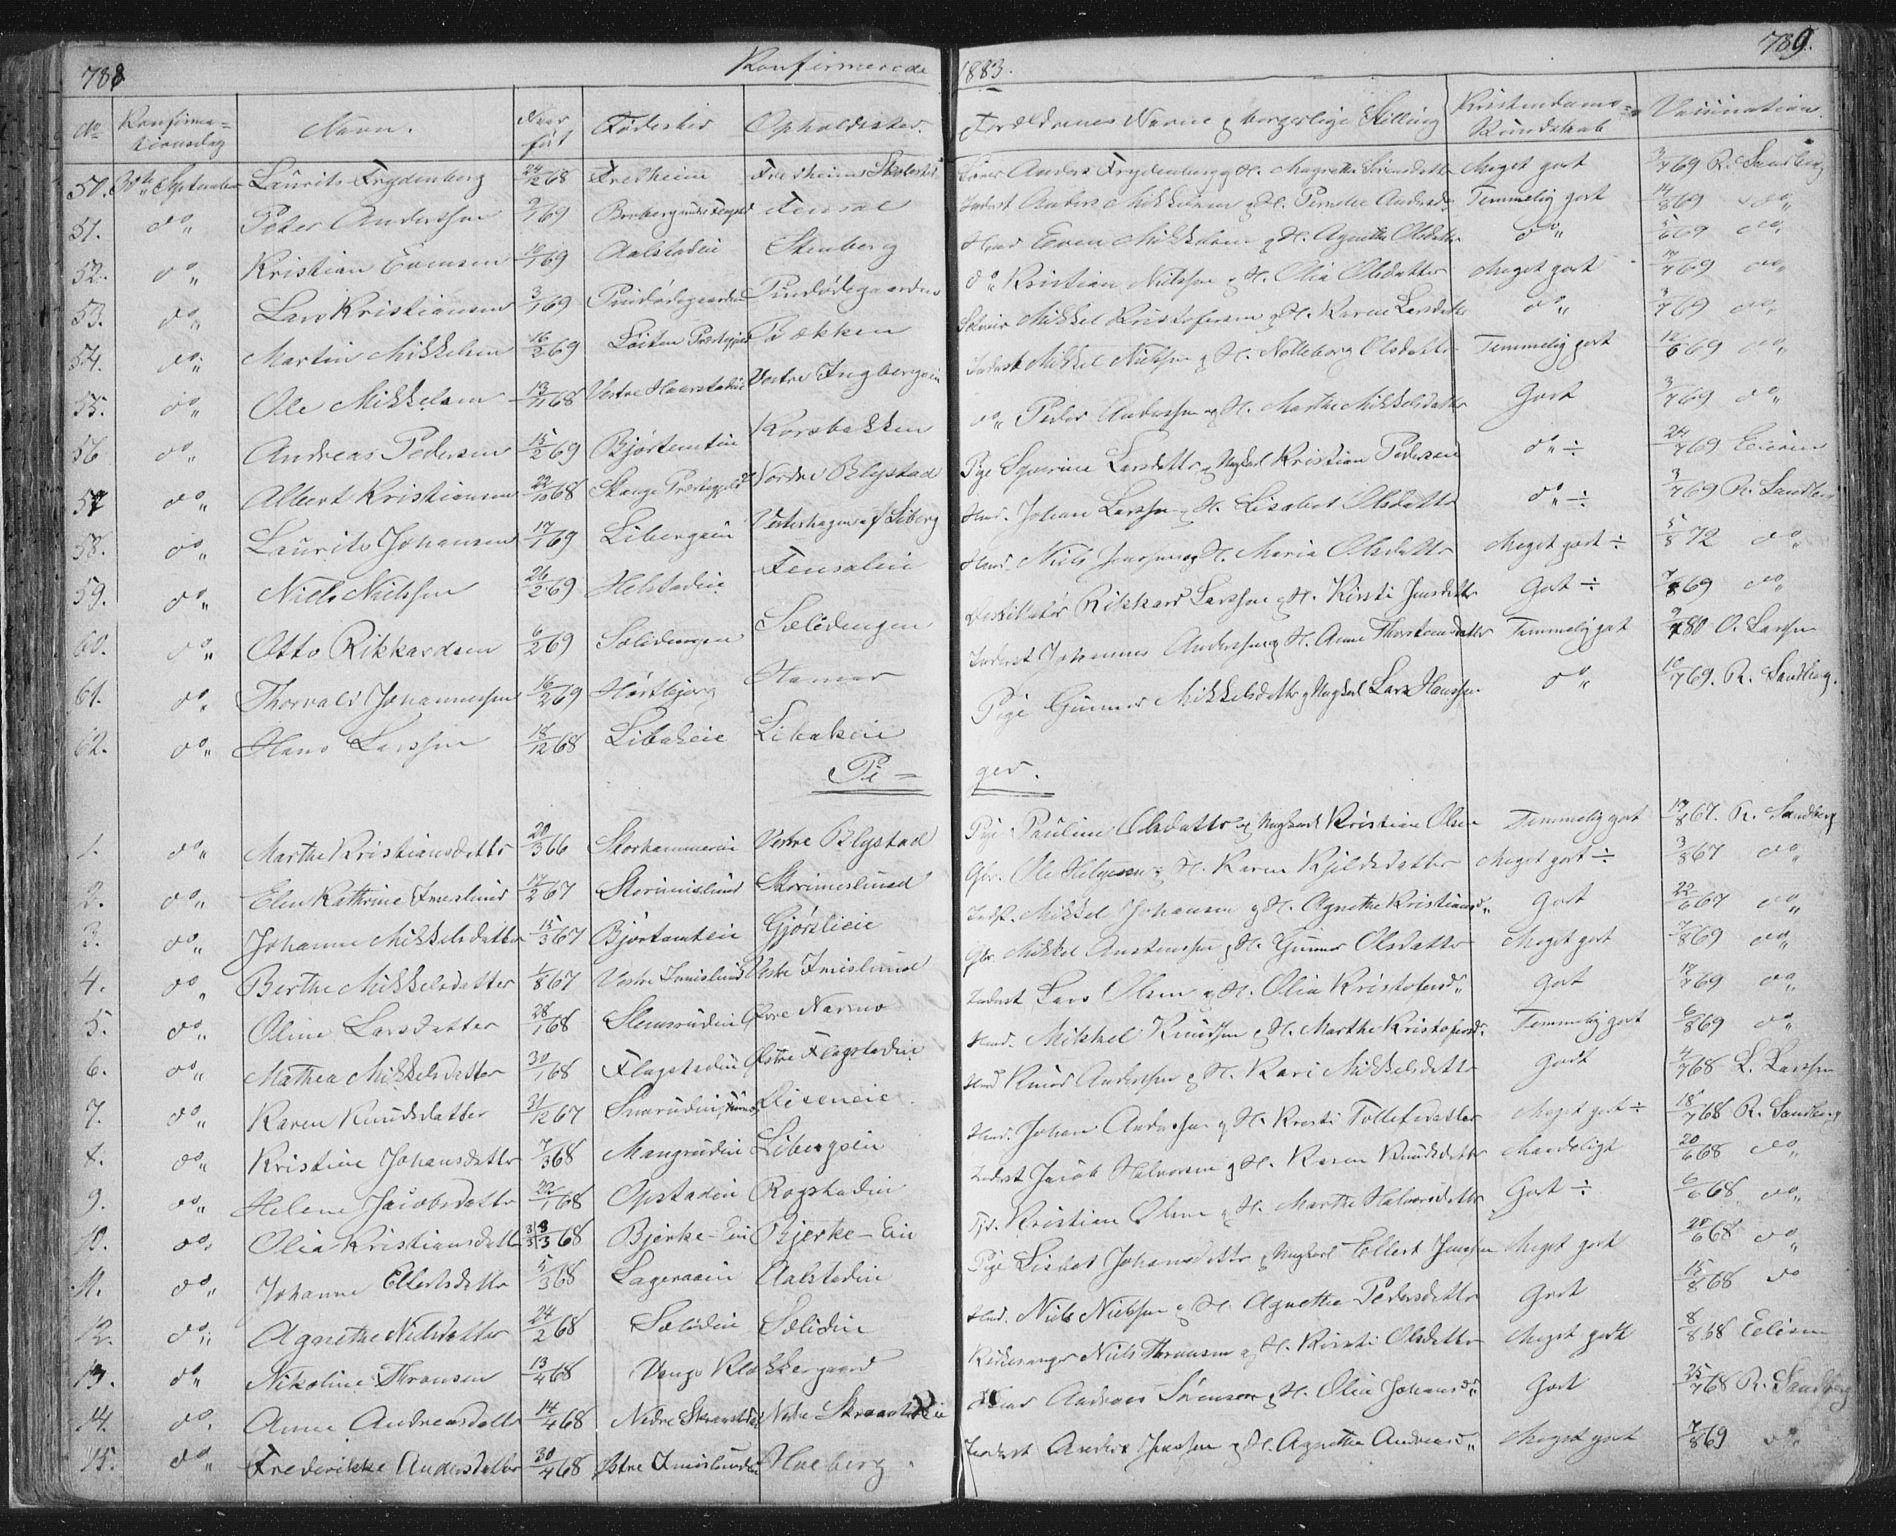 788
Konfirmerede
1883.
789.
No Konfirma=tionsdag Navn. Naar født Fødested Opholdssted. Forældrenes Navne og borgerlige Stilling Kristendoms=Kundskab Vaccination.
50. 30te September Laurits Frydenberg 24/2 68 Fredheim Fredheim Anders Frydenberg og H. Magrethe Sørensdatter Meget godt 3/7 69 R. Sandberg
51. do Peter Anderssen 9/1 69 Fensal Inderst Anders Mikkelsen og H. Pernelie Andersd. Temmelig godt 14/8 69 do
52. do Kristian Evensen 16/1 69 Aalstadeie Stenberg Huusd Even Mikkelsen og H. Agnethe Olsdatter do 5/6 69 do
53. do Lars Kristiansen 3/1 69 Pindødegaarden Pindødegaarden do Kristian Nielsen og H. Olia Olsdatter Meget godt 17/7 69 do
54. do Martin Mikkelsen 16/2 69 Løiten Præstegjeld Bækken Mikkel Kristofersen og H. Karen Larsdatter do 3/7 69 do
55. do Ole Mikkelsen 13/11 68 Vestre Haarstadeie Vestre Ingbergeie Inderst Mikkel Nielsen og H. Olsdatter Temmelig godt 12/6 69 do
56 do Andreas Pedersen 15/2 69 Bjørtomteie Korsbakken do Peder Anderssen og H. Marthe Mikkelsdatter Godt 3/7 69 do
57 do Albert Kristiansen 22/10 68 Stange Præstegjeld Nordre Blystad Pige Syverine Larsdatter og Ungkarl Kristian Pedersen do ÷ 24/7 69
58. do Laurits Johansen 17/1 69 Libergseie Vesterhagen af Liberg Huusd. Johan Larssen og H. Lisabet Olsdatter do ÷ 3/7 69 R. Sandberg
59. do Niels Nielsen 26/2 69 Helstadeie Fensaleie Huusd. Niels Jenssen og H. Maria Olsdatter Meget godt ÷ 5/8 72 do
60. do Otto Rikkardsen 6/2 69 Sælidengen Sælidengen Destillatør Rikkard Larssen og H. Kirsti Jensdatter Godt ÷ 7/8 69 do
61. do Thorvald Johannessen 16/2 69 Hørtbjerg Hamar Inderst Johannes Anderssen og H. Anne Thorstensdatter Temmelig godt 80 O. Larssen
62. do Hans Larssen 18/12 68 Libakeie Libakeie Pige Gunnor Mikkelsdatter og Ungkarl Lars Hanssen do 10/7 69. R. Sandberg.
Pi=ger.
1. do Marthe Kristiansdatter 20/3 66 Storhammereie Vestre Blystad Pige Pauline Olsdatter og Ungkarl Kristian Olsen Temmelig godt 19/8 67. R. Sandberg
2. do Elen Kathrine Imeslund 17/2 67 Skorimslund Skorimeslund Gbr. Ole Helgesen og H. Karen Kjeldsdatter Meget godt ÷ 3/8 67 do
3. do Johanne Mikkelsdatter 15/3 67 Bjørtomteie Gjørslieie Indf. Mikkel Johansen og H. Agnethe Kristiansd. Godt 22/6 67 do
4. do Berthe Mikkelsdatter 1/8 67 Vestre Imislund Vestre Imislund Gbr. Mikkel Anstensen og H. Gunnor Olsdatter Meget godt 7/8 69 do
5. do Oline Larsdatter 28/1 68 Slemsrudeie Øvre Narmo Inderst Lars Olsen og H. Olia Kristofersd. Godt 17/7 69 do
6. do Mathea Mikkelsdatter 30/1 68 Flagstadeie Østre Flagstadeie Huusd. Mikkel Knudsen og H. Marthe Kristofersd. Temmelig godt 6/8 69 do
7. do Karen Knudsdatter 31/12 67 Huusd Knud Anderssen og H. Kari Mikkelsdatter Godt 4/7 68 L. Larssen
8. do Kristine Johansdatter 7/3 68 Mangrudeie Libergseie Huusd. Johan Anderssen og H. Kirsti Tollefsdatter Meget godt ÷ 18/7 68 R. Sandberg
9. do Helene Jacobsdatter 22/1 68 Opstadeie Rogstadeie Inderst Jacob Halvorsen og H. Karen Knudsdatter Maadeligt 20/6 68 do
10. do Olia Kristiansdatter 3/3 68 Bjerke-Eie Bjerke-Eie Kristian Olsen og H. Marthe Halvorsdatter Godt ÷ 6/6 68 do
11. do Johanne Ellertsdatter 5/3 68 Lageraaeie Aalstadeie Pige Lisbet Johansdatter og Ungkarl Ellert Jenssen Meget godt 20/6 68 do
12. do Agnethe Nilsdatter 24/2 68 Sælideie Sælideie Huusd. Niels Nielssen og H. Agnethe Pedersdatter Godt 15/8 68 do
13. do Nikoline Thronsen 13/4 68 Vangs Klokkergaard Kirkesanger Niels Thronsen og H. Kirsti Olsdatter Meget godt 8/8 68
14. do Anne Andreasdatter 14/4 68 Nedre Skraastadeie Nedre Skraastadeie Andreas Sørensen og H. Olia Johansd. Godt 25/7 68 R. Sandberg
15. do Frederikke Andersdatter 30/4 68 Østre Imislundeie Hoeberg Inderst Anders Jenssen og H. Agnethe Andersd. Meget godt 7/8 69 do